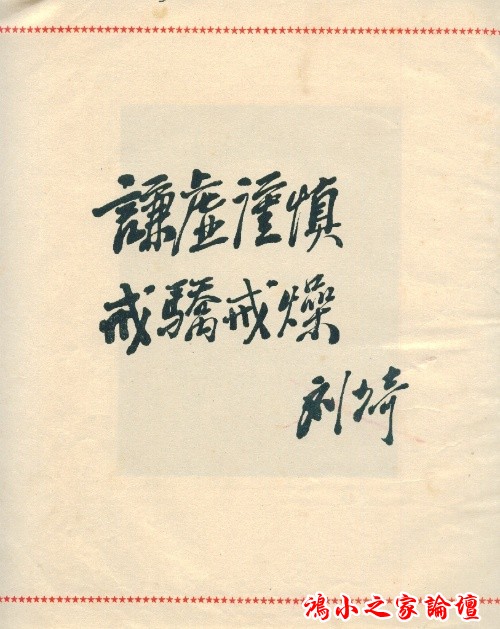 謙虛謹慎
戒驕戒燥
刘埼
鴻小之家論壇